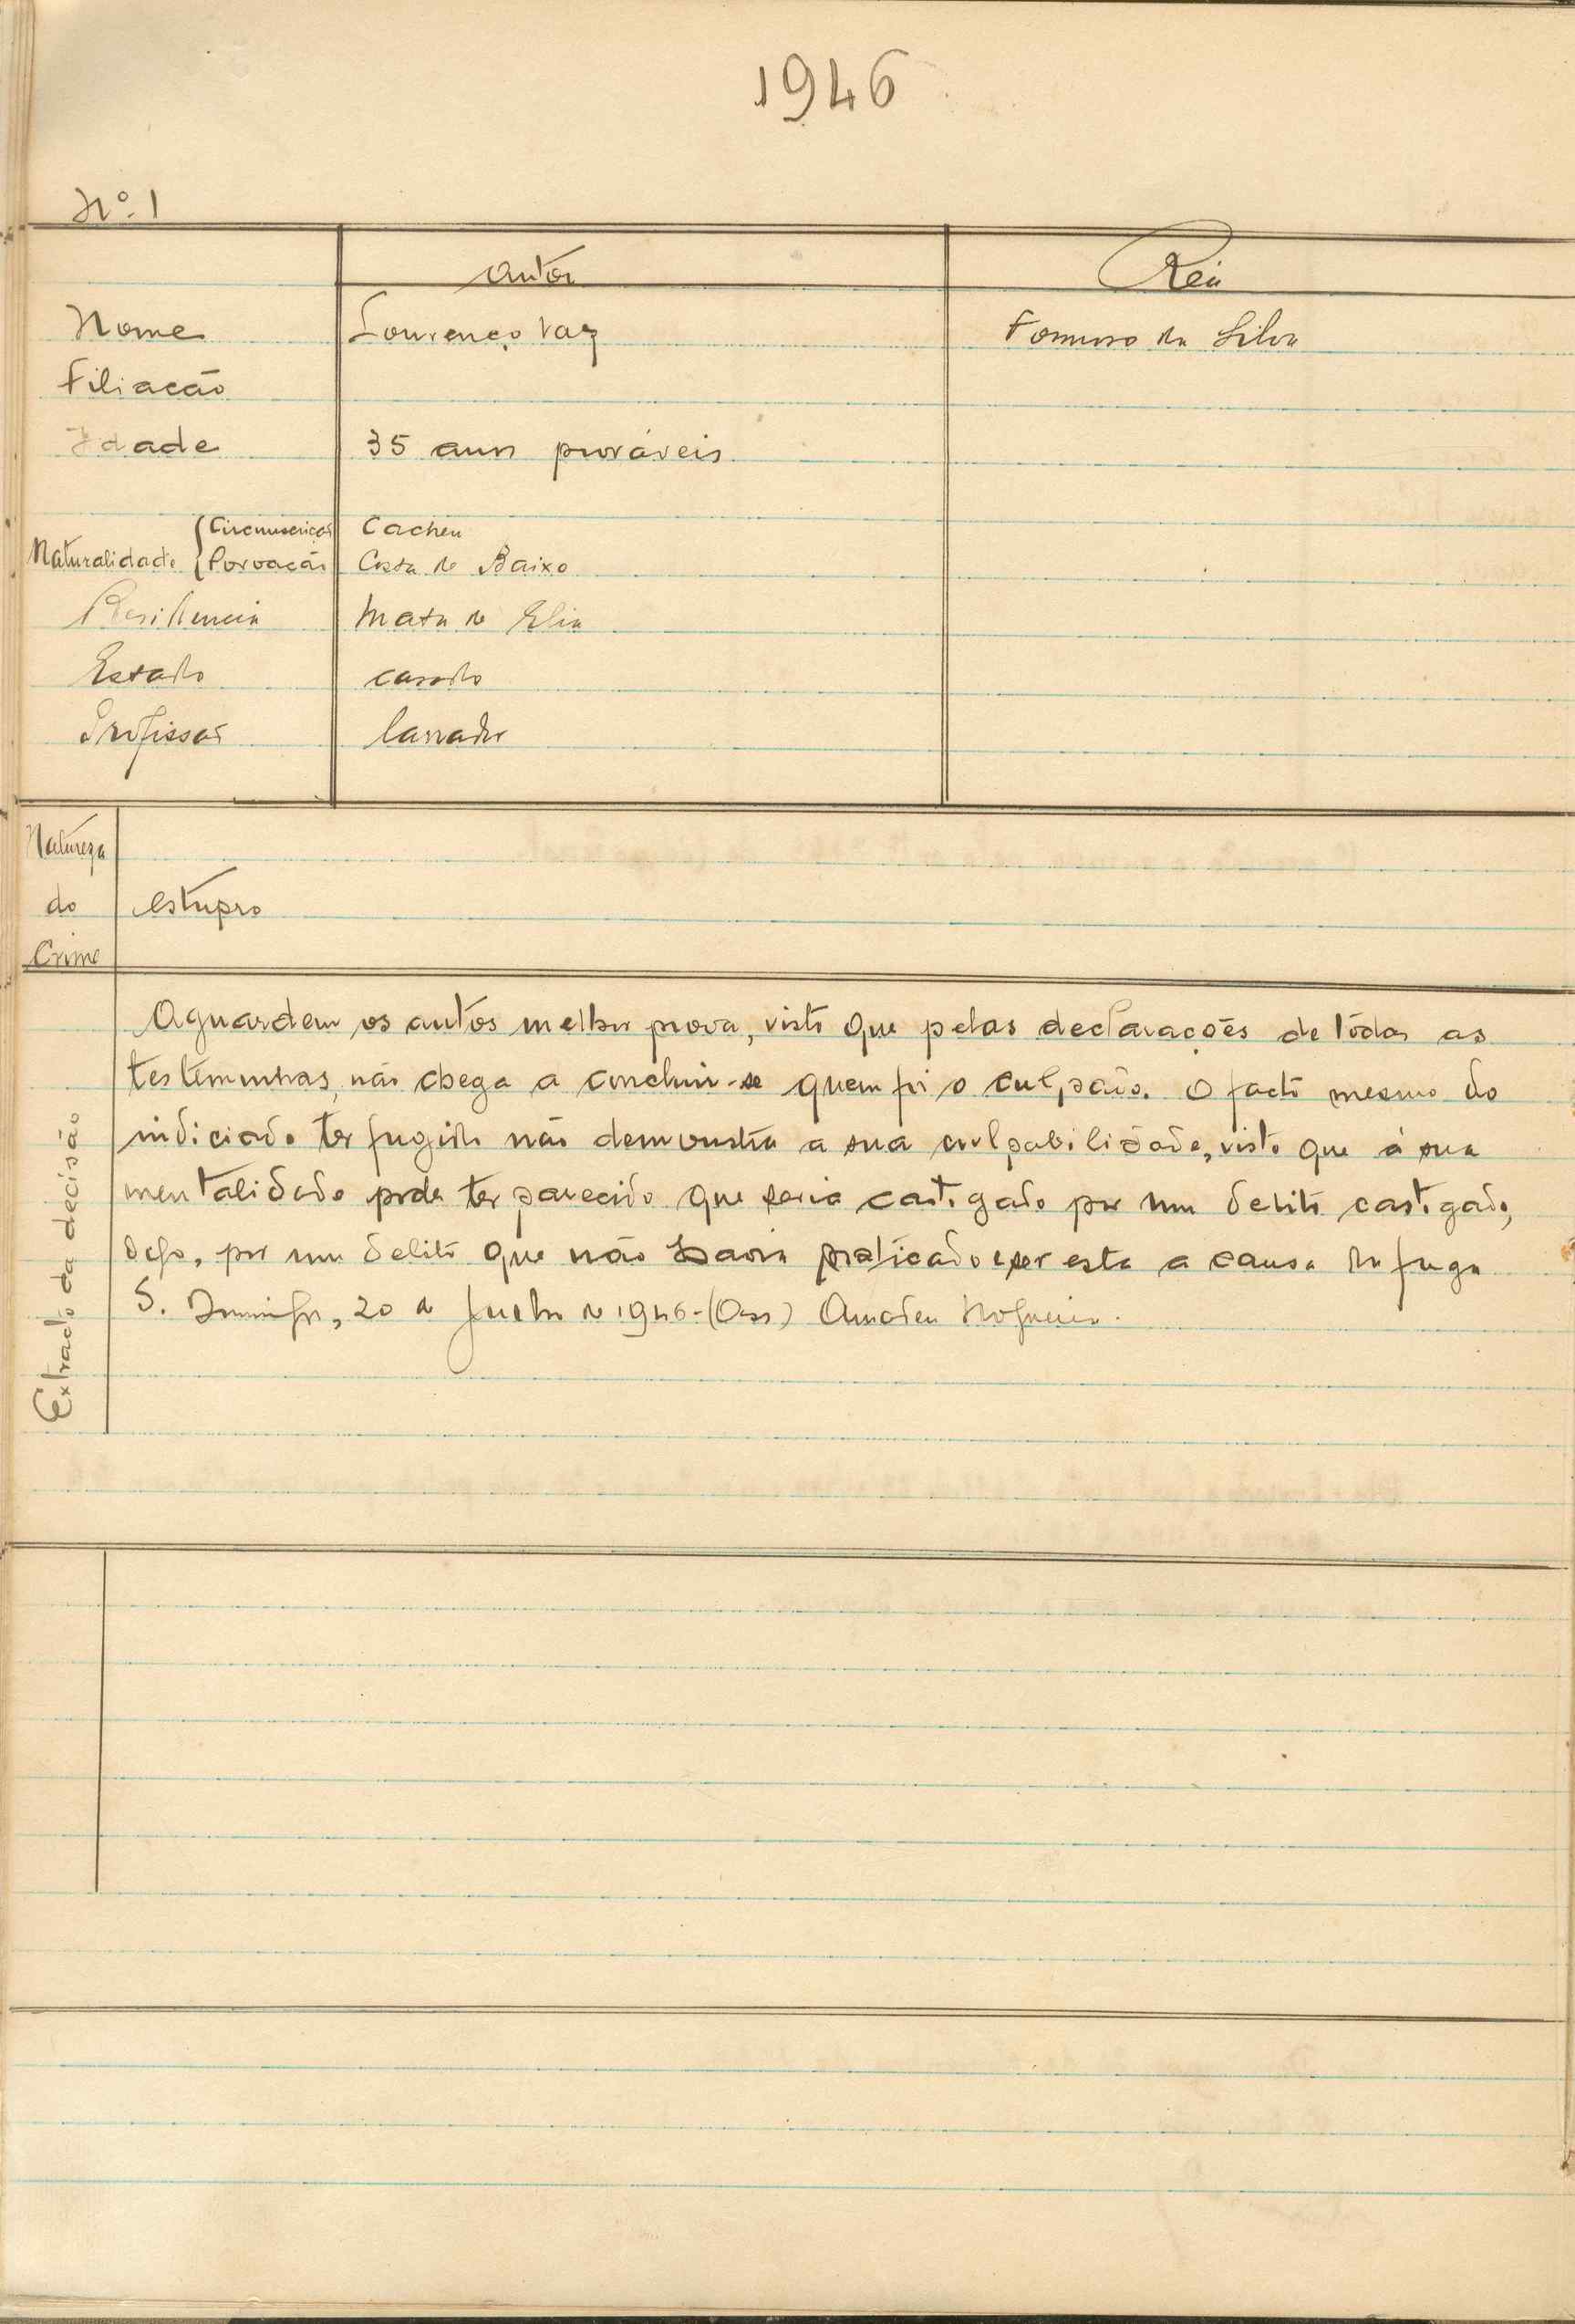 1946
Nº. 1
Autor
Réu
Nome Lourenço Vaz Formoso da Silva
Filiação
Idade 35 anos prováveis
Naturalidade { Circunscrição Cacheu
Povoação Costa de Baixo
Residencia Mata de
Estado casado
Profissão lavrador
Natureza
do estupro
Crime
Extrato da decisão
Aguardem os autos melhor prova, visto que pelas declarações de tôdas as
testemunhas, não chega a concluir-se quem foi o culpado. O facto mesmo do
indiciado ter fugido não demonstra a sua culpabilidade, visto que á sua
mentalidade pode ter parecido que seria castigado por um delito castigado,
digo, por um delito que não havia praticado e ser esta a causa da fuga
S. Domingos, 20 de Junho de 1946-(Ass) Amadeu Nogueira.